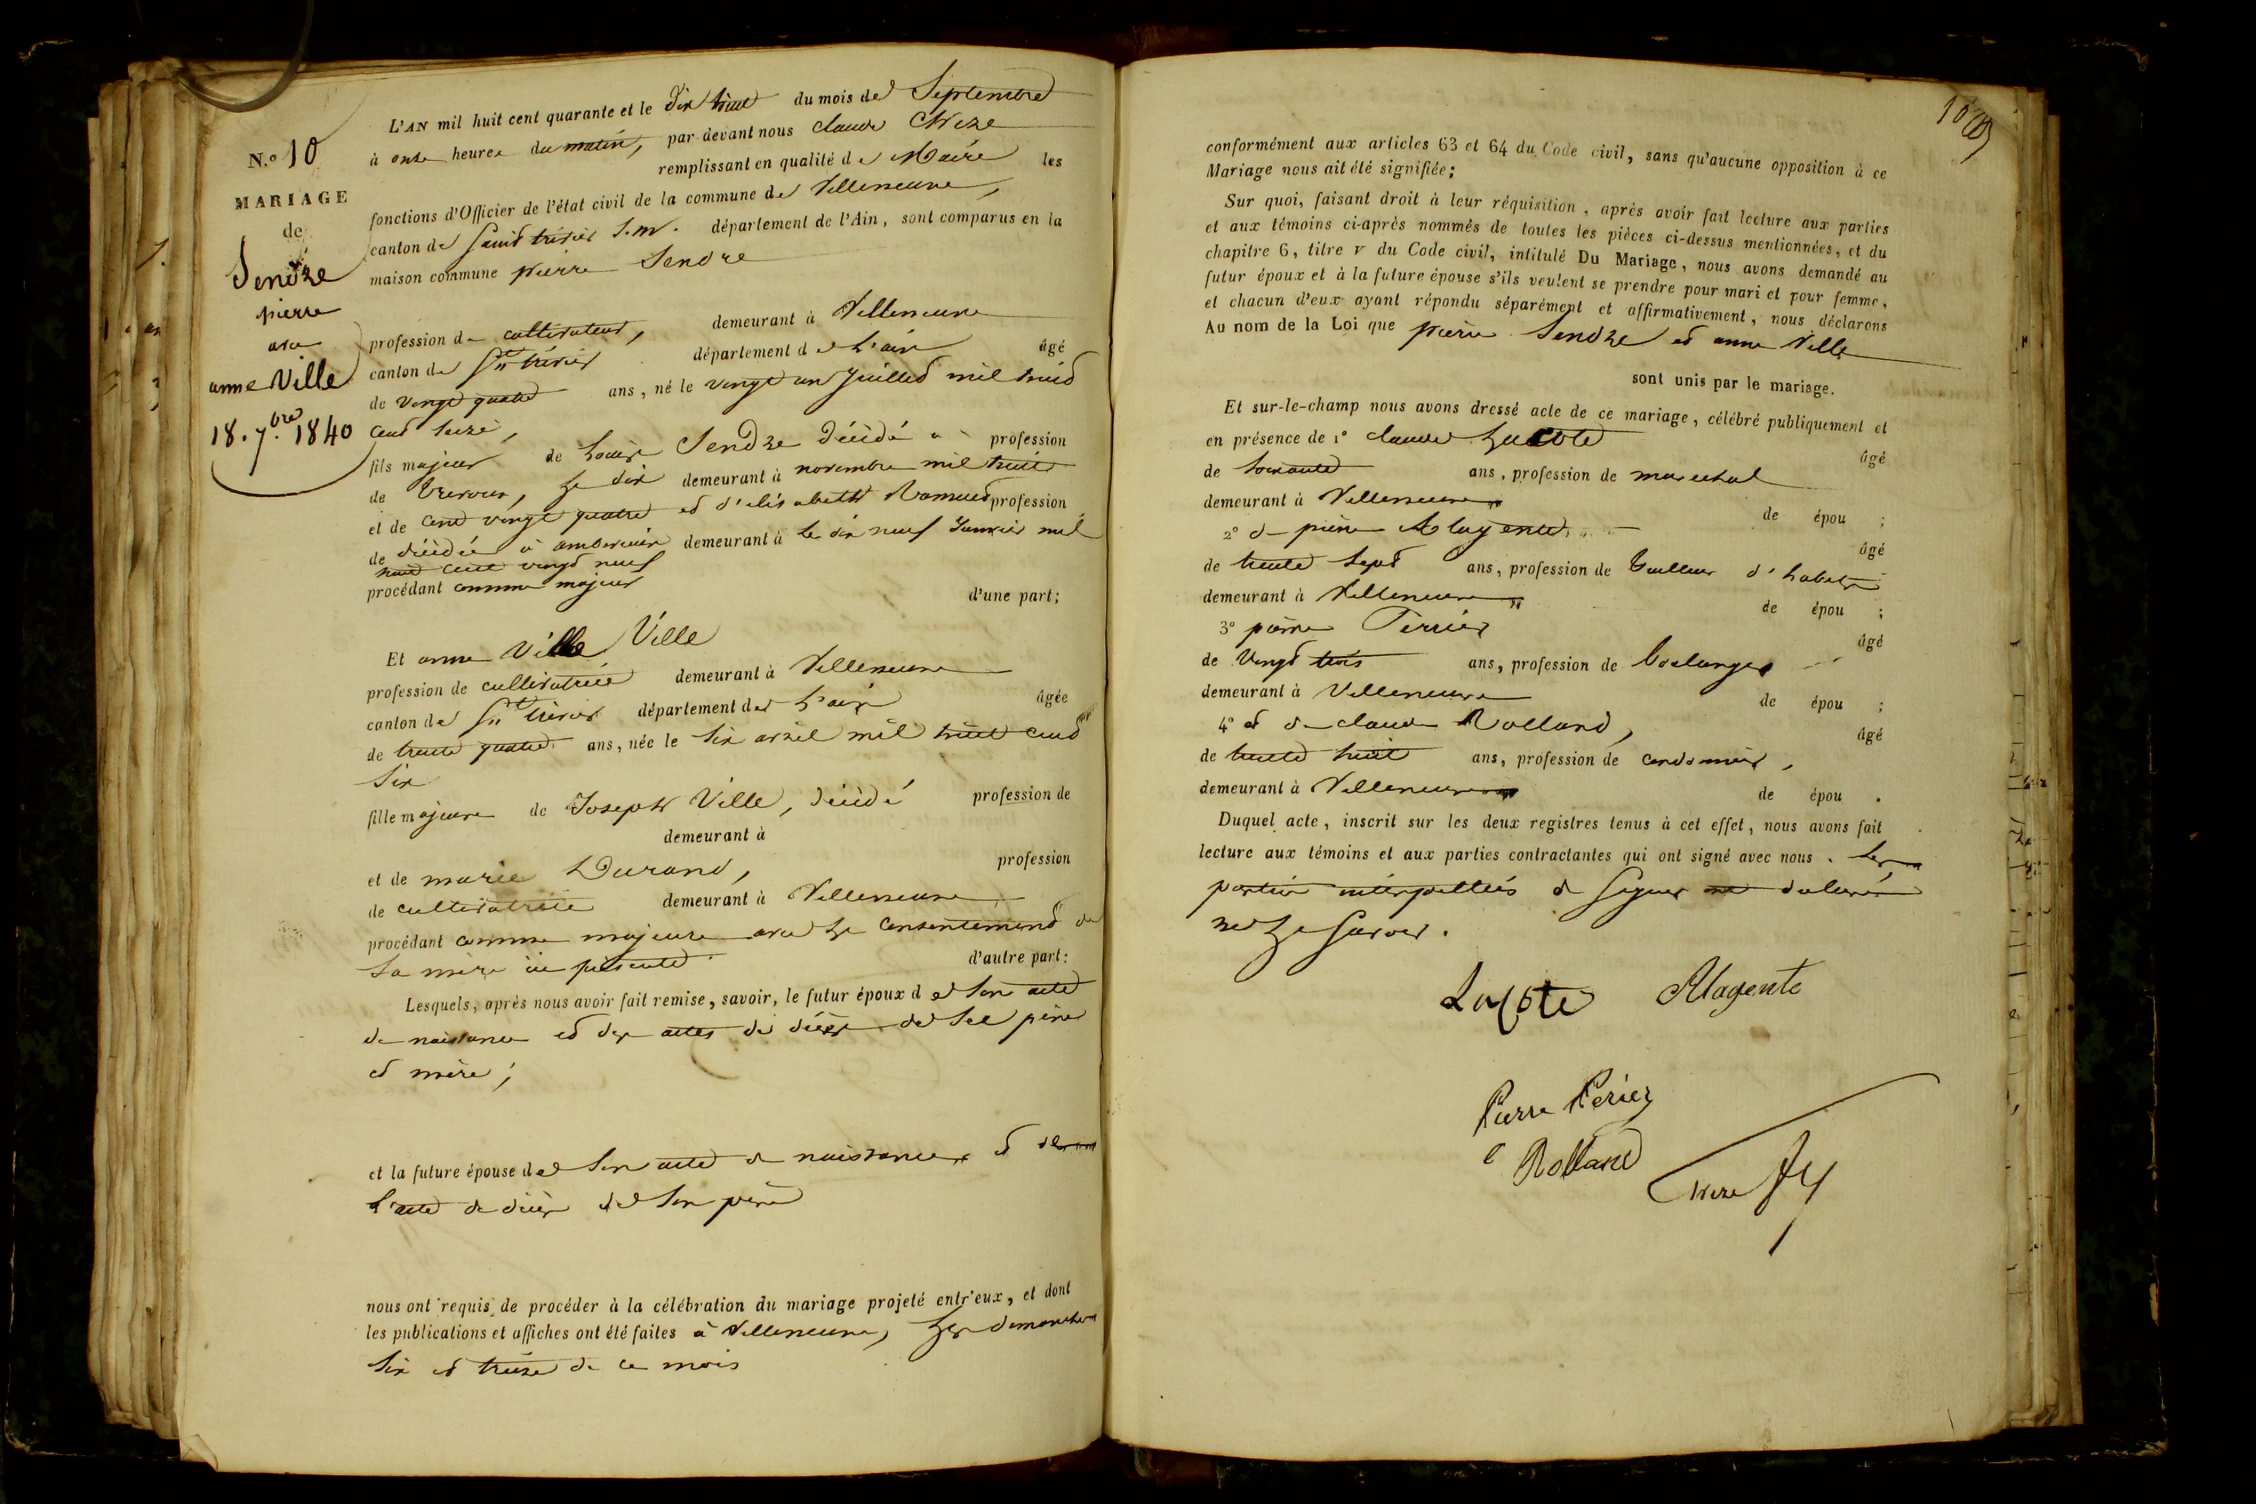 N.º 10
MARIAGE
de
Sendre
pierre
avec
anne Ville
18. 7.bre 1840
L'AN mil huit cent quarante et le dix huit du mois de Septembre
à onze heures du matin, par devant nous claude
remplissant en qualité de Maire les
fonctions d'Officier de l'état civil de la commune de Villeneuve,
canton de Saint trivier S.m. département de l'Ain, sont comparus en la
maison commune pierre Sendre
profession de cultivateur, demeurant à Villeneuve
canton de St trivier département de L'ain âgé
de vingt quatre ans, né le vingt un Juillet mil huit
cent seize,
fils majeur de Louis Sendre décédé à profession
de trevoux, Le dix demeurant à novembre mil huit
et de cent vingt quatre et d'elisabeth profession
de décédée à amberieux demeurant à le dix neuf Janvier mil
huit cent vingt neuf
procédant comme majeur
d'une part;
Et anne Ville Ville
profession de cultivatrice demeurant à Villeneuve
canton de St trivier département de L'ain âgée
de trente quatre ans, née le six avril mil huit cent
six
fille majeure de Joseph Ville, décédé profession de
demeurant à
et de marie Durand, profession
de cultivatrice demeurant à Villeneuve
procédant comme majeure avec Le consentement de
Sa mère ici présente d'autre part:
Lesquels, après nous avoir fait remise, savoir, le futur époux de Son acte
de naissance et des actes de décès de Ses père
et mère;
et la future épouse de Son acte de naissance et de
L'acte de décès de Son père
nous ont requis de procéder à la célébration du mariage projeté entr'eux, et dont
les publications et affiches ont été faites à Villeneuve, Les dimanches
six et treize de ce mois
conformément aux articles 63 et 64 du Code civil, sans qu'aucune opposition à ce
Mariage nous ait été signifiée;
Sur quoi, faisant droit à leur réquisition, après avoir fait lecture aux parties
et aux témoins ci-après nommés de toutes les pièces ci-dessus mentionnées, et du
chapitre 6, titre V du Code civil, intitulé Du Mariage, nous avons demandé au
futur époux et à la future épouse s'ils veulent se prendre pour mari et pour femme,
et chacun d'eux ayant répondu séparément et affirmativement, nous déclarons
Au nom de la Loi que pierre Sendre et anne Ville
sont unis par le mariage.
Et sur-le-champ nous avons dressé acte de ce mariage, célébré publiquement et
en présence de 1º claude Lacote
âgé
de soixante ans, profession de marechal
demeurant à Villeneuve de épou ;
2º de pierre Alagente
âgé
de trente sept ans, profession de tailleur d'habits
demeurant à Villeneuve de épou ;
3º pierre Perrier
âgé
de Vingt trois ans, profession de boulanger
demeurant à Villeneuve de épou ;
4º et de claude Rolland,
âgé
de trente huit ans, profession de cordonnier,
demeurant à Villeneuve de épou .
Duquel acte, inscrit sur les deux registres tenus à cet effet, nous avons fait
lecture aux témoins et aux parties contractantes qui ont signé avec nous. Les
parties interpellées de signer ont déclaré
ne Le savoir.
Lacote Alagente
Pierre Périer
Rolland